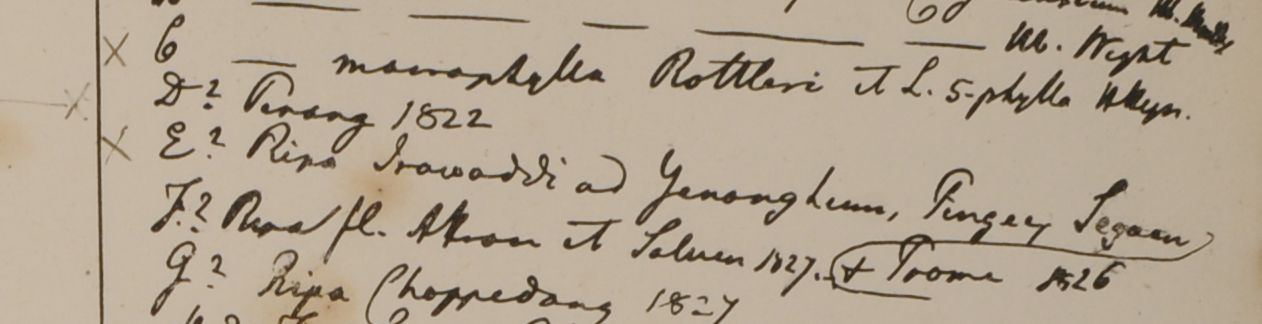 Hb. Wight
C — macrophylla Rottleri et L. 5-phylla Hkeyn.
D? Penang 1822
E? Ripa Irawaddi ad Yenanghum, Pingey Segaen
F? Ripa fl. Attran et Saluen 1827. & Prome 1826
G? Ripa Choppedong 1827